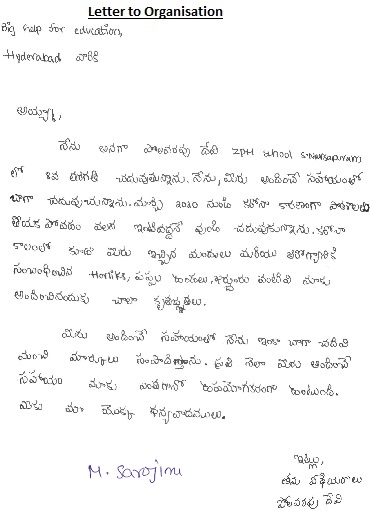 Letter to Organisation
Big help for education,
Hyderabad వారికి
అయ్యా,
నేను అనగా పోలవరపు దేవి ZPH School S.Narsapuram
లో 8వ తరగతి చదువుతున్నాను. నేను, మీరు అందించే సహాయంతో
బాగా చదువుచున్నాను. మార్చి 2020 నుండి కరోనా కారణంగా పాఠశాలలు
తీయక పోవడం వలన ఇంటివద్దనే వుండి చదువుకున్నాను. కరోనా
కాలంలో కూడా మీరు ఇచ్చిన మందులు మరియు ఆరోగ్యానికి
సంబంధించిన Horliks, పప్పు ఉండలు, ఖర్జూరం వంటివి మాకు
అందించినందుకు చాలా కృతజ్ఞతలు.
మీరు అందించే సహాయంతో నేను ఇంకా బాగా చదివి
మంచి మార్కులు సంపాదిస్తాను. ప్రతి నెలా మీరు అందించే
సహాయం మాకు ఎంతగానో ఉపయోగకరంగా ఉంటుంది.
మీకు మా యొక్క ధన్యవాదములు.
ఇట్లు,
M. Sarojini
తమ విధేయురాలు
పోలవరపు దేవి